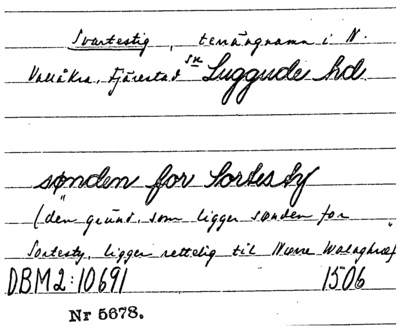 Svartestig, terrängnamn i N.
Vallåkra, Fjärestad sn Luggude hd
sønden for Sortesty
(den grund, som ligger sønden for
Sortesty, ligger rettelig til Nørre
DBM2:10691 1506
Nr 5678.